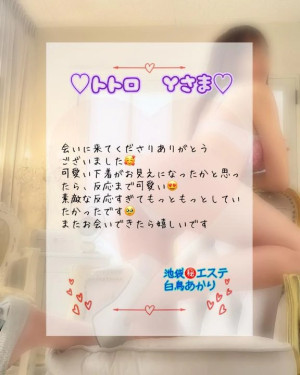 ♡トトロ Yさま♡
会いに来てくださりありがとう
ございました🥰
可愛い下着がお見えになったかと思っ
たら、反応まで可愛い😍
素敵な反応すぎてもっともっとしてい
たかったです🥹
またお会いできたら嬉しいです
池袋㊙️エステ
白鳥あかり